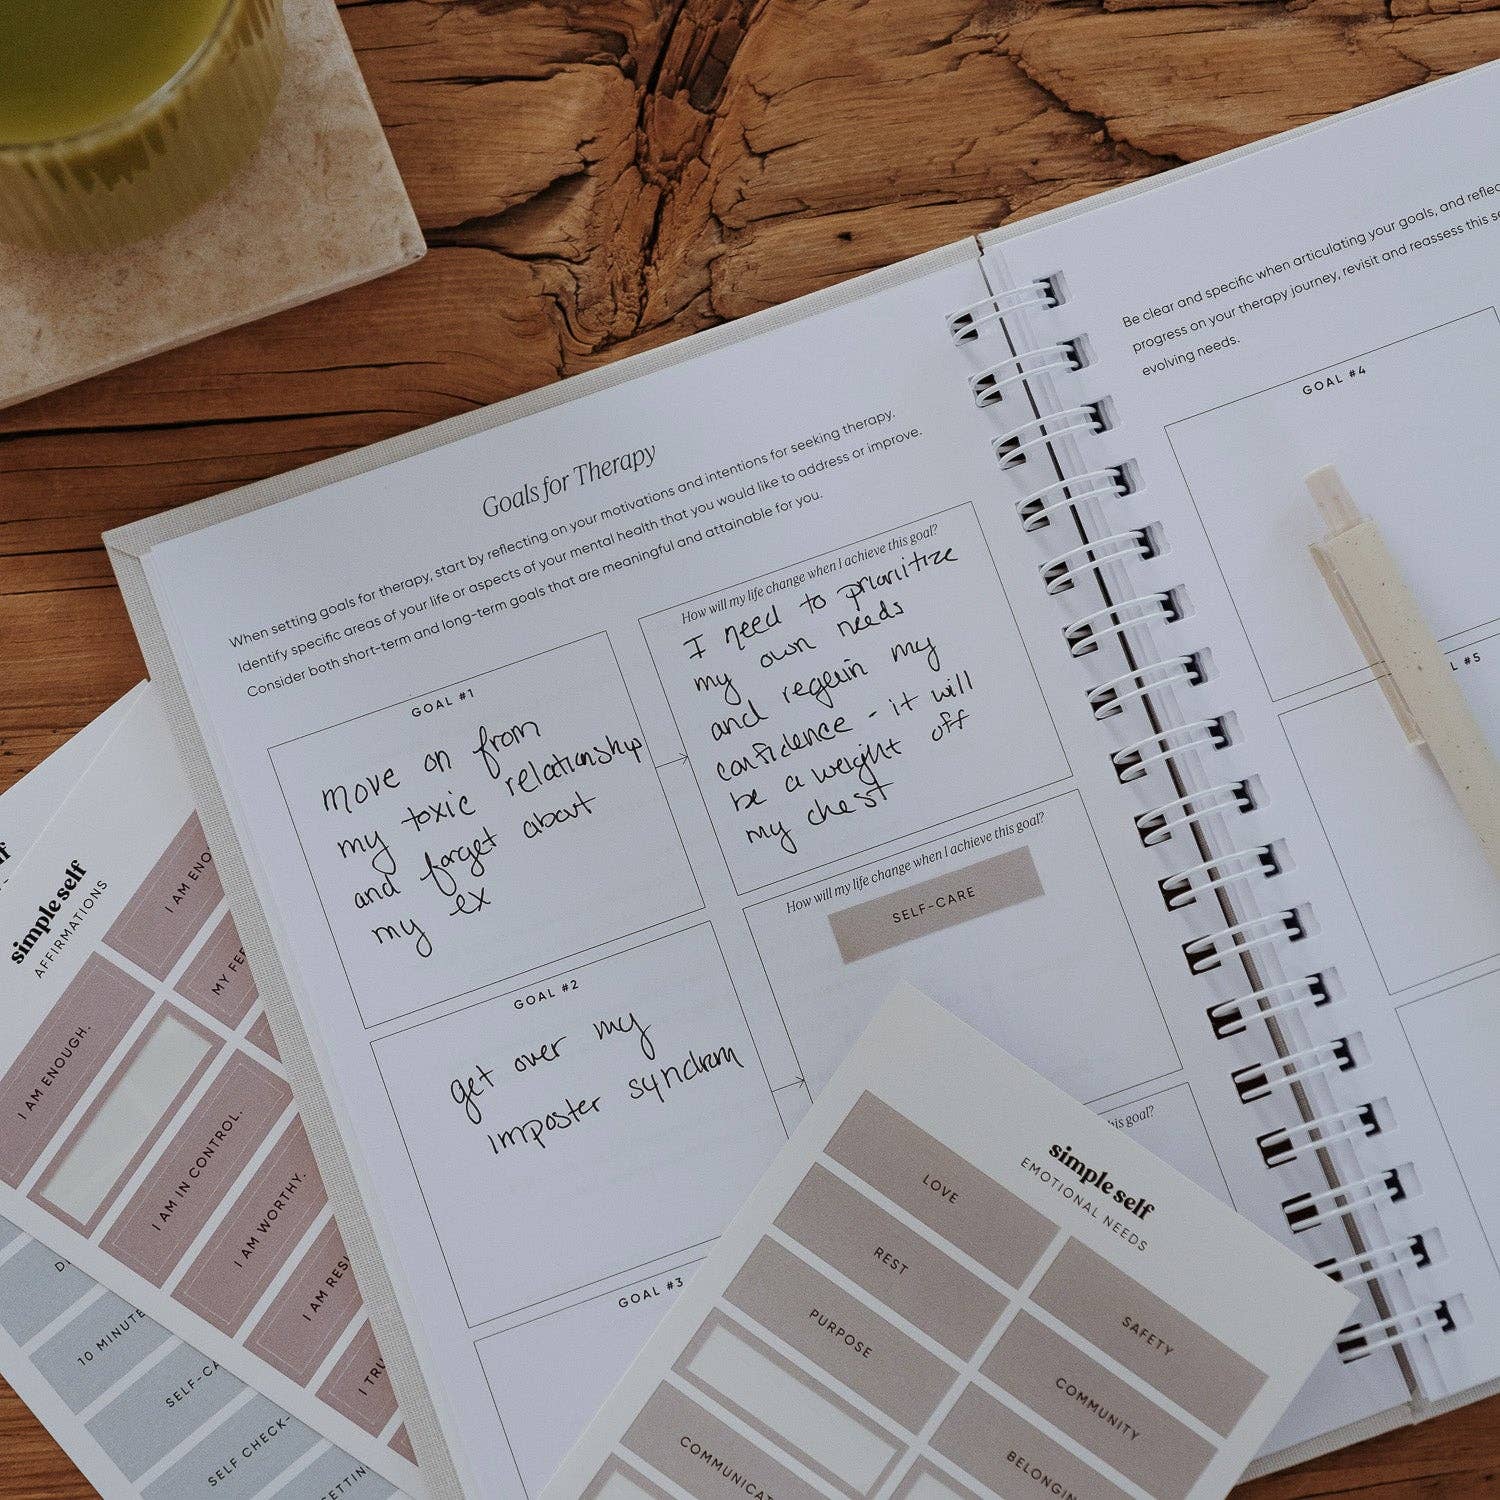 Goals for Therapy
When setting goals for therapy, start by reflecting on your motivations and intentions for seeking therapy.
Identify specific areas of your life or aspects of your mental health that you would like to address or improve.
Consider both short-term and long-term goals that are meaningful and attainable for you.
GOAL #1
move on from
my toxic relationship
and forget about
my ex
How will my life change when I achieve this goal?
I need to prioriitize
my own needs
and regain my
confidence - it will
be a weight off
my chest
GOAL #2
get over my
imposter syndrom
How will my life change when I achieve this goal?
SELF-CARE
GOAL #3
this goal?
Be clear and specific when articulating your goals, and reflec
progress on your therapy journey, revisit and reassess this se
evolving needs.
GOAL #4
L #5
simple self
EMOTIONAL NEEDS
LOVE
REST
PURPOSE
COMMUNICAT
SAFETY
COMMUNITY
BELONGIN
simple self
AFFIRMATIONS
I AM ENO
MY FEE
I AM ENOUGH.
I AM IN CONTROL.
I AM WORTHY.
I AM RESI
I TRU
10 MINUTE
SELF-CA
SELF CHECK-
ETTIN